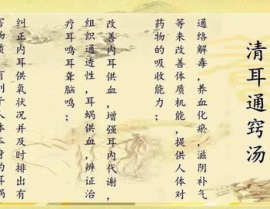 清耳通窍汤
通络解毒，养血化瘀，滋阴补气
等来改善体质机能，提供人体对
药物的吸收能力；
改善内耳供血，增强耳内代谢，
组织通透性，耳蜗供血，辨证治
疗耳鸣耳聋脑鸣；
纠正内耳供氧状况并及时排出有